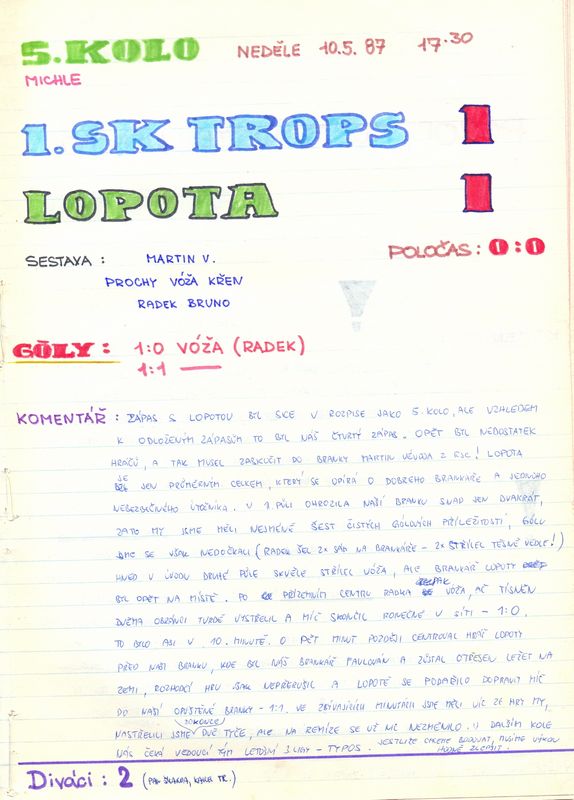 5. KOLO NEDĚLE 10.5. 87 17.30
MICHLE
1. SK TROPS 1
LOPOTA 1
POLOČAS : 0:0
SESTAVA : MARTIN V.
PROCHY VÓŽA KŘEN
RADEK BRUNO
GÓLY : 1:0 VÓŽA (RADEK)
1:1 —
KOMENTÁŘ : ZÁPAS S LOPOTOU BYL SICE V ROZPISE JAKO 5. KOLO, ALE VZHLEDEM
K ODLOŽENÝM ZÁPASŮM TO BYL NÁŠ ČTVRTÝ ZÁPAS. OPĚT BYL NEDOSTATEK
HRÁČŮ, A TAK MUSEL ZASKOČIT DO BRANKY MARTIN Z ! LOPOTA
JE JEN PRŮMĚRNÝM CELKEM, KTERÝ SE OPÍRÁ O DOBRÉHO BRANKÁŘE A JEDNOHO
NEBEZPEČNÉHO ÚTOČNÍKA. V 1. PŮLI OHROZILA NAŠÍ BRANKU SNAD JEN DVAKRÁT,
ZATO MY JSME MĚLI NEJMÉNĚ ŠEST ČISTÝCH GÓLOVÝCH PŘÍLEŽITOSTÍ, GÓLU
JSME SE VŠAK NEDOČKALI (RADEK ŠEL 2x SÁM NA BRANKÁŘE - 2x STŘÍLEL TĚSNĚ VEDLE!)
HNED V ÚVODU DRUHÉ PŮLE SKVĚLE STŘÍLEL VÓŽA, ALE BRANKÁŘ LOPOTY
BYL OPĚT NA MÍSTĚ. PO PŘÍZEMNÍM CENTRU RADKA VÓŽA, AČ TÍSNĚN
DVĚMA OBRÁNCI TVRDĚ VYSTŘELIL A MÍČ SKONČIL KONEČNĚ V SÍTI - 1:0.
TO BYLO ASI V 10. MINUTĚ. O PĚT MINUT POZDĚJI CENTROVAL HRÁČ LOPOTY
PŘED NAŠI BRANKU, KDE BYL NÁŠ BRANKÁŘ FAULOVÁN A ZŮSTAL OTŘESEN LEŽET NA
ZEMI, ROZHODČÍ HRU VŠAK NEPŘERUŠIL A LOPOTĚ SE PODAŘILO DOPRAVIT MÍČ
DO NAŠÍ OPUŠTĚNÉ BRANKY - 1:1. VE ZBÝVAJÍCÍCH MINUTÁCH JSME MĚLI VÍC ZE HRY MY,
NASTŘELILI JSME DOKONCE DVĚ TYČE, ALE NA REMÍZE SE UŽ NIC NEZMĚNILO. V DALŠÍM KOLE
NÁS ČEKÁ VEDOUCÍ TÝM LETOŠNÍ 3. LIGY - TYPOS. JESTLIŽE CHCEME BODOVAT, MUSÍME VÝKON
HODNĚ ZLEPŠIT.
Diváci : 2 (PAN , KAREL TR.)